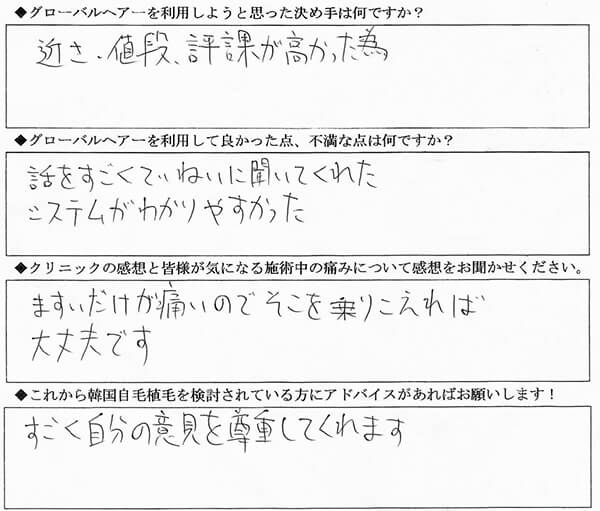 ◆グローバルヘアーを利用しようと思った決め手は何ですか？
近さ・値段、評課が高かった為
◆グローバルヘアーを利用して良かった点、不満な点は何ですか？
話をすごくていねいに聞いてくれた
システムがわかりやすかった
◆クリニックの感想と皆様が気になる施術中の痛みについて感想をお聞かせください。
ますいだけが痛いのでそこを乗りこえれば
大丈夫です
◆これから韓国自毛植毛を検討されている方にアドバイスがあればお願いします！
すごく自分の意見を尊重してくれます